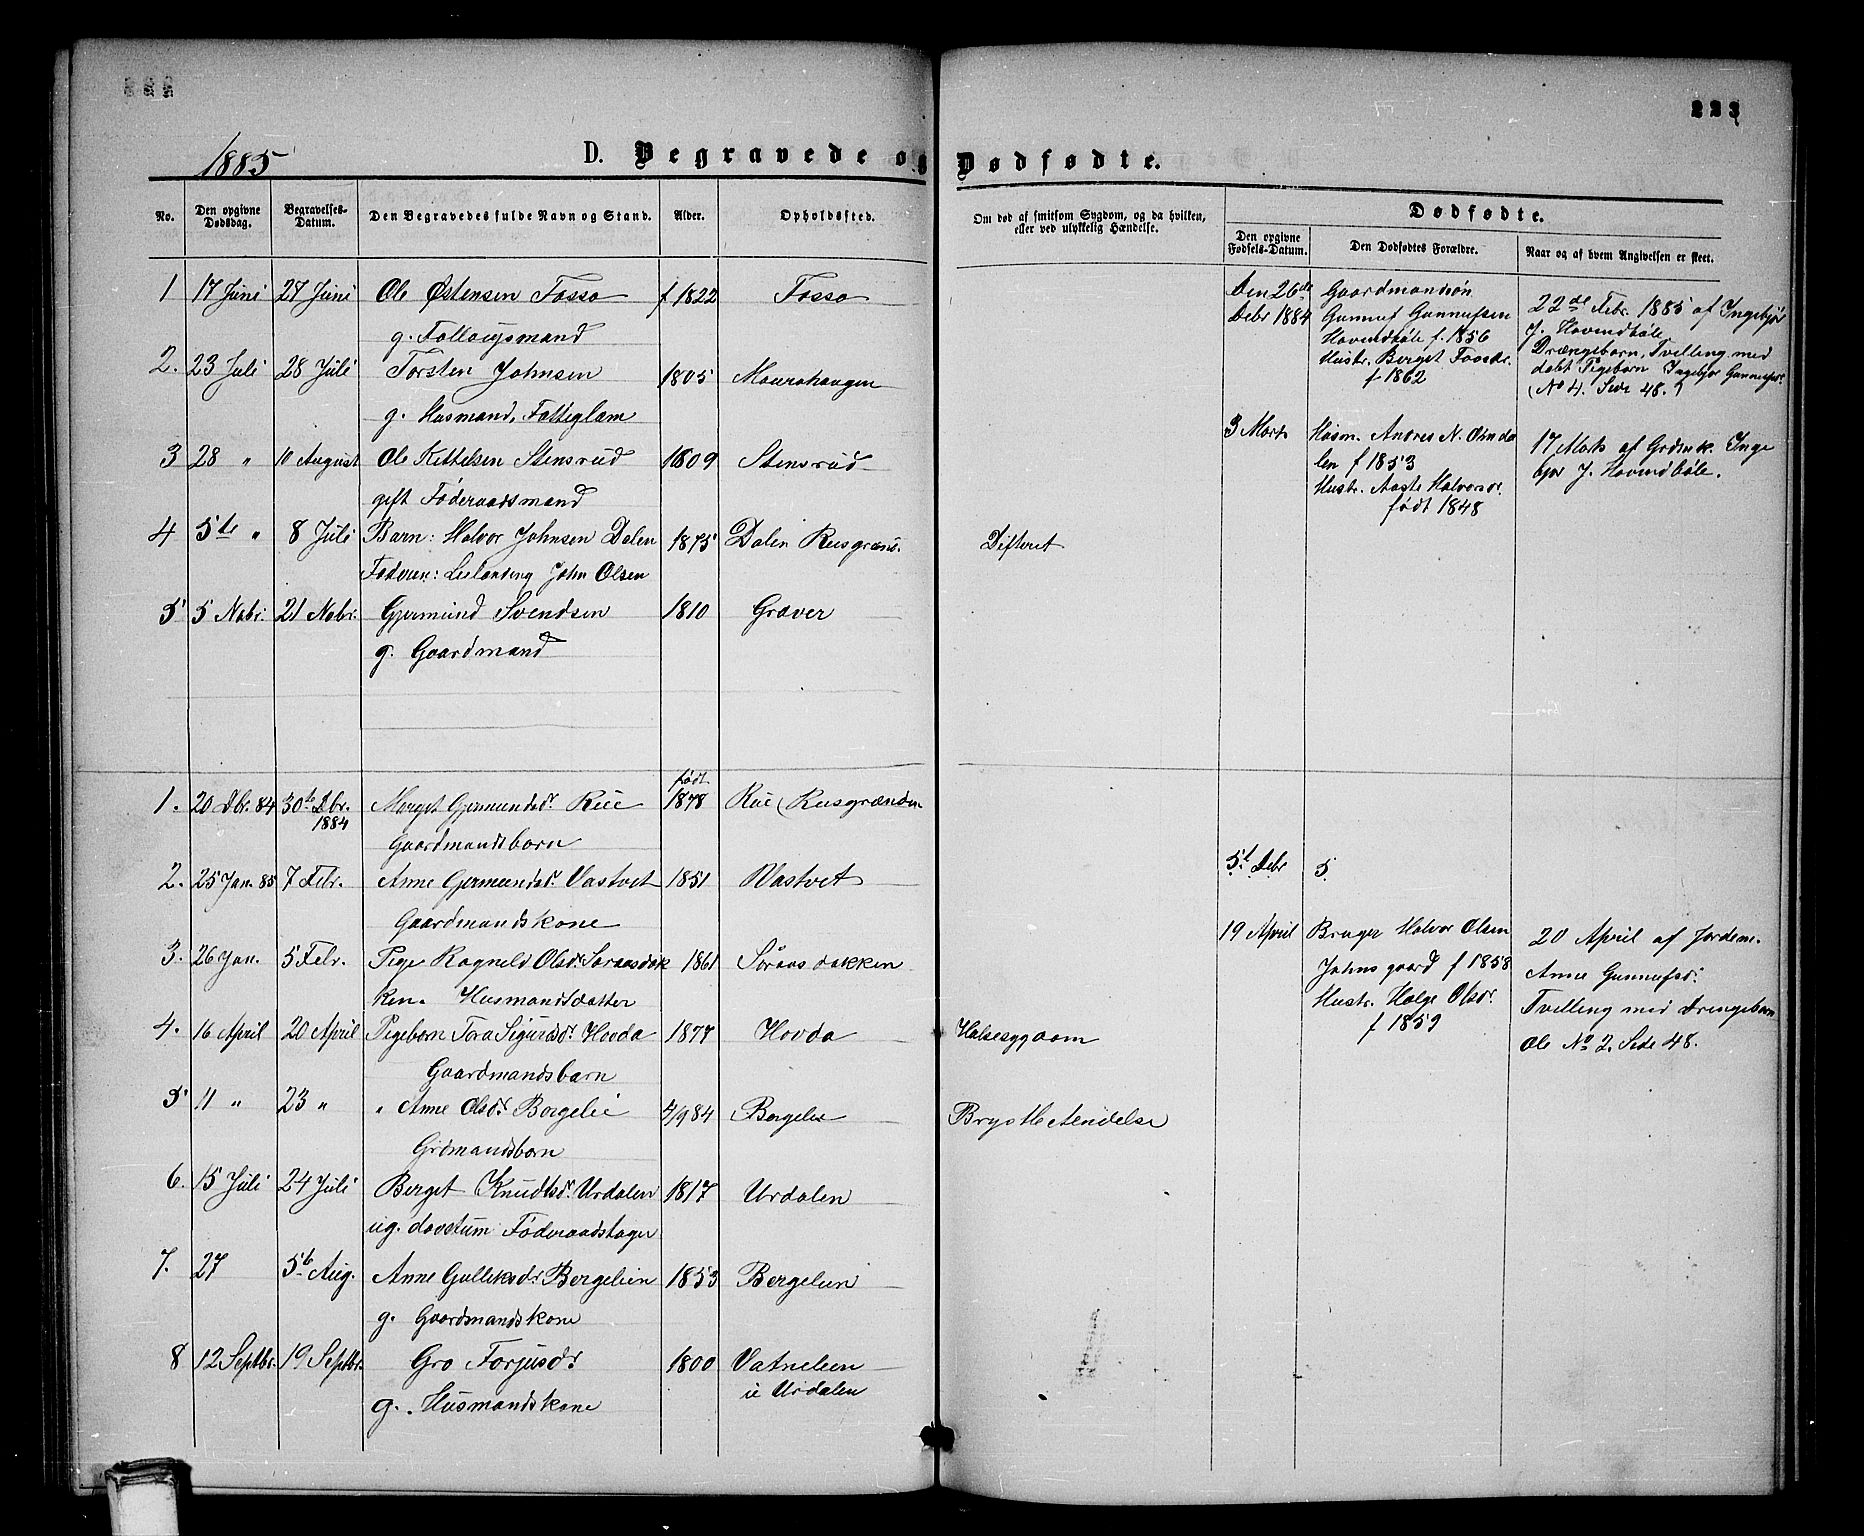 223
1885
D. Begravede og Dødfødte.
No.
Den opgivne Dødsdag.
Begravelses-Datum.
Den Begravedes fulde Navn og Stand.
Alder.
Opholdssted.
Om død af smitsom Sygdom, og da hvilken, eller ved ulykkelig Hændelse.
Dødfødte.
Den opgivne Fødsels-Datum.
Den Dødfødtes Forældre.
Naar og af hvem Angivelsen er skeet.
1 17 Juni 27 Juni Ole Østensen Fosso f 1822 Fosso
g.
2. 23 Juli 28 Juli Torsten Johnsen 1805 Mourahaugen
g. Husmand, Fattiglem
3 28 " 10 August Ole Kittelsen Stensrud 1809 Stensrud
gift Føderaadsmand
4 5te " 8 Juli Barn: Halvor Johnsen Dalen 1875 Dalen Rusgrænd. Difterit
Faderen: Leilænding John Olsen
5 5 Nobr. 21 Nobr. Gjermund Svendsen 1810 Graver
g. Gaardmand
Den 26de Gaardmandsøn 22de Febr. 1885 af Ingebjør
Debr 1884 Gunnuf Gunnufsen J. Hovindbøle
Hovindbøle f. 1856 Drængebarn, Tvilling med
Hustr. Berget døbt Pigebarn Ingebjør Gunnufsdr.
f 1862 (No 4. Side 48.)
3 Marts Husm. Andres N. Ormda 17 Marts af Grdmk. Inge
len f 1853 bjør J. Hovindbøle.
Hustr. Aaste Halvorsdr.
født 1848
1. 20 Dbr. 84 30te Dbr. 1884 Marget Gjermundsdr. Rue født 1878 Rue (Rusgrænden
Gaardmandsbarn
2. 25 Jan. 85 7 Febr. Anne Germundsdr. Vastvet 1851 Vastvet
Gaardmandskone
3. 26 Jan. 5 Febr. Pige Ragneld Olsdr. Søraasdak 1861 Søraas dakken
ken. Husmandsdatter
4. 16 April 20 April Pigebarn Tora Sigurdsdr. Hovda 1877 Hovda Halssygdom
Gaardmandsbarn
5 11 " 23 " " Anne Olsdr. Borgelie 4/9 84 Borgelie Brystbetændelse
Grdmandsbarn
6. 15 Juli 24 Juli Berget Knudtsdr. Urdalen 1817 Urdalen
ug. Føderaadstager
7. 27 5te Aug. Anne Gulleksdr. Bergelien 1853 Bergelien
g. Gaardmandskone
8 12 Septbr. 19 Septbr. Gro Torjusdr 1800 Vatnelien
g. Husmandskone u Urdalen
5t Debr 5
19 April Bruger Halvor Olsen 20 April af Jordem.
Johnsgaard f 1858 Anne Gunnufsdr.
Hustr. Helge Olsdr. Tvilling med Drengebarn
f 1859 Ole No 2. Side 48.